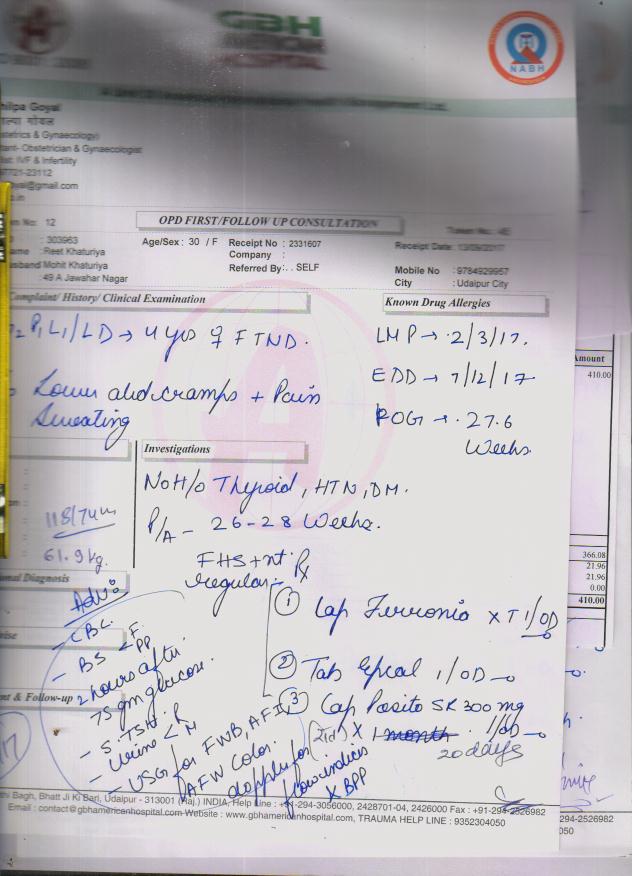 GBH
AMERICAN
HOSPITAL
NABH
hilpa Goyal
गोयल
stetrics & Gynaecology)
tant- Obstetrician & Gynaecologist
list: IVF & Infertility
97721-23112
oyal@gmail.com
o.in
en No: 12
OPD FIRST/FOLLOW UP CONSULTATION
: 303963
Age/Sex : 30 / F Receipt No : 2331607
Receipt Date: 13/09/2017
ame : Reet Khaturiya
Company :
usband Mohit Khaturiya
Referred By: . . SELF
Mobile No : 9784929957
: 49 A Jawahar Nagar
City : Udaipur City
Complaint/ History/ Clinical Examination
Known Drug Allergies
P1 L1/LD → 4 yrs ♀ FTND.
LMP → 2/3/17.
EDD → 7/12/17
Lower abd cramps + Pain
Sweating
POG → 27.6
Weeks
Investigations
No H/o Thyroid, HTN, DM.
118/74
61.9 kg.
P/A - 26-28 Weeks.
FHS + nt
regular
Rx
onal Diagnosis
Adv:
- CBC
- BS < F
PP
2 hours after
75 gm glucose.
- S.TSH
- Urine < R
M
- USG for FWB, AFI,
AFW Color
doppler for
flow indices
X BPP
① Cap Ferronia X T 1/OD
② Tab 1/OD
③ Cap Posito SR 300 mg
X 1 month 1/OD
20 days
vise
nt & Follow-up
Amount
410.00
366.08
21.96
21.96
0.00
410.00
thi Bagh, Bhatt Ji Ki Bari, Udaipur - 313001 (Raj.) INDIA, Help Line : +91-294-3056000, 2428701-04, 2426000 Fax : +91-294-2526982
Email : contact@gbhamericanhospital.com Website : www.gbhamericanhospital.com, TRAUMA HELP LINE : 9352304050
294-2526982
050